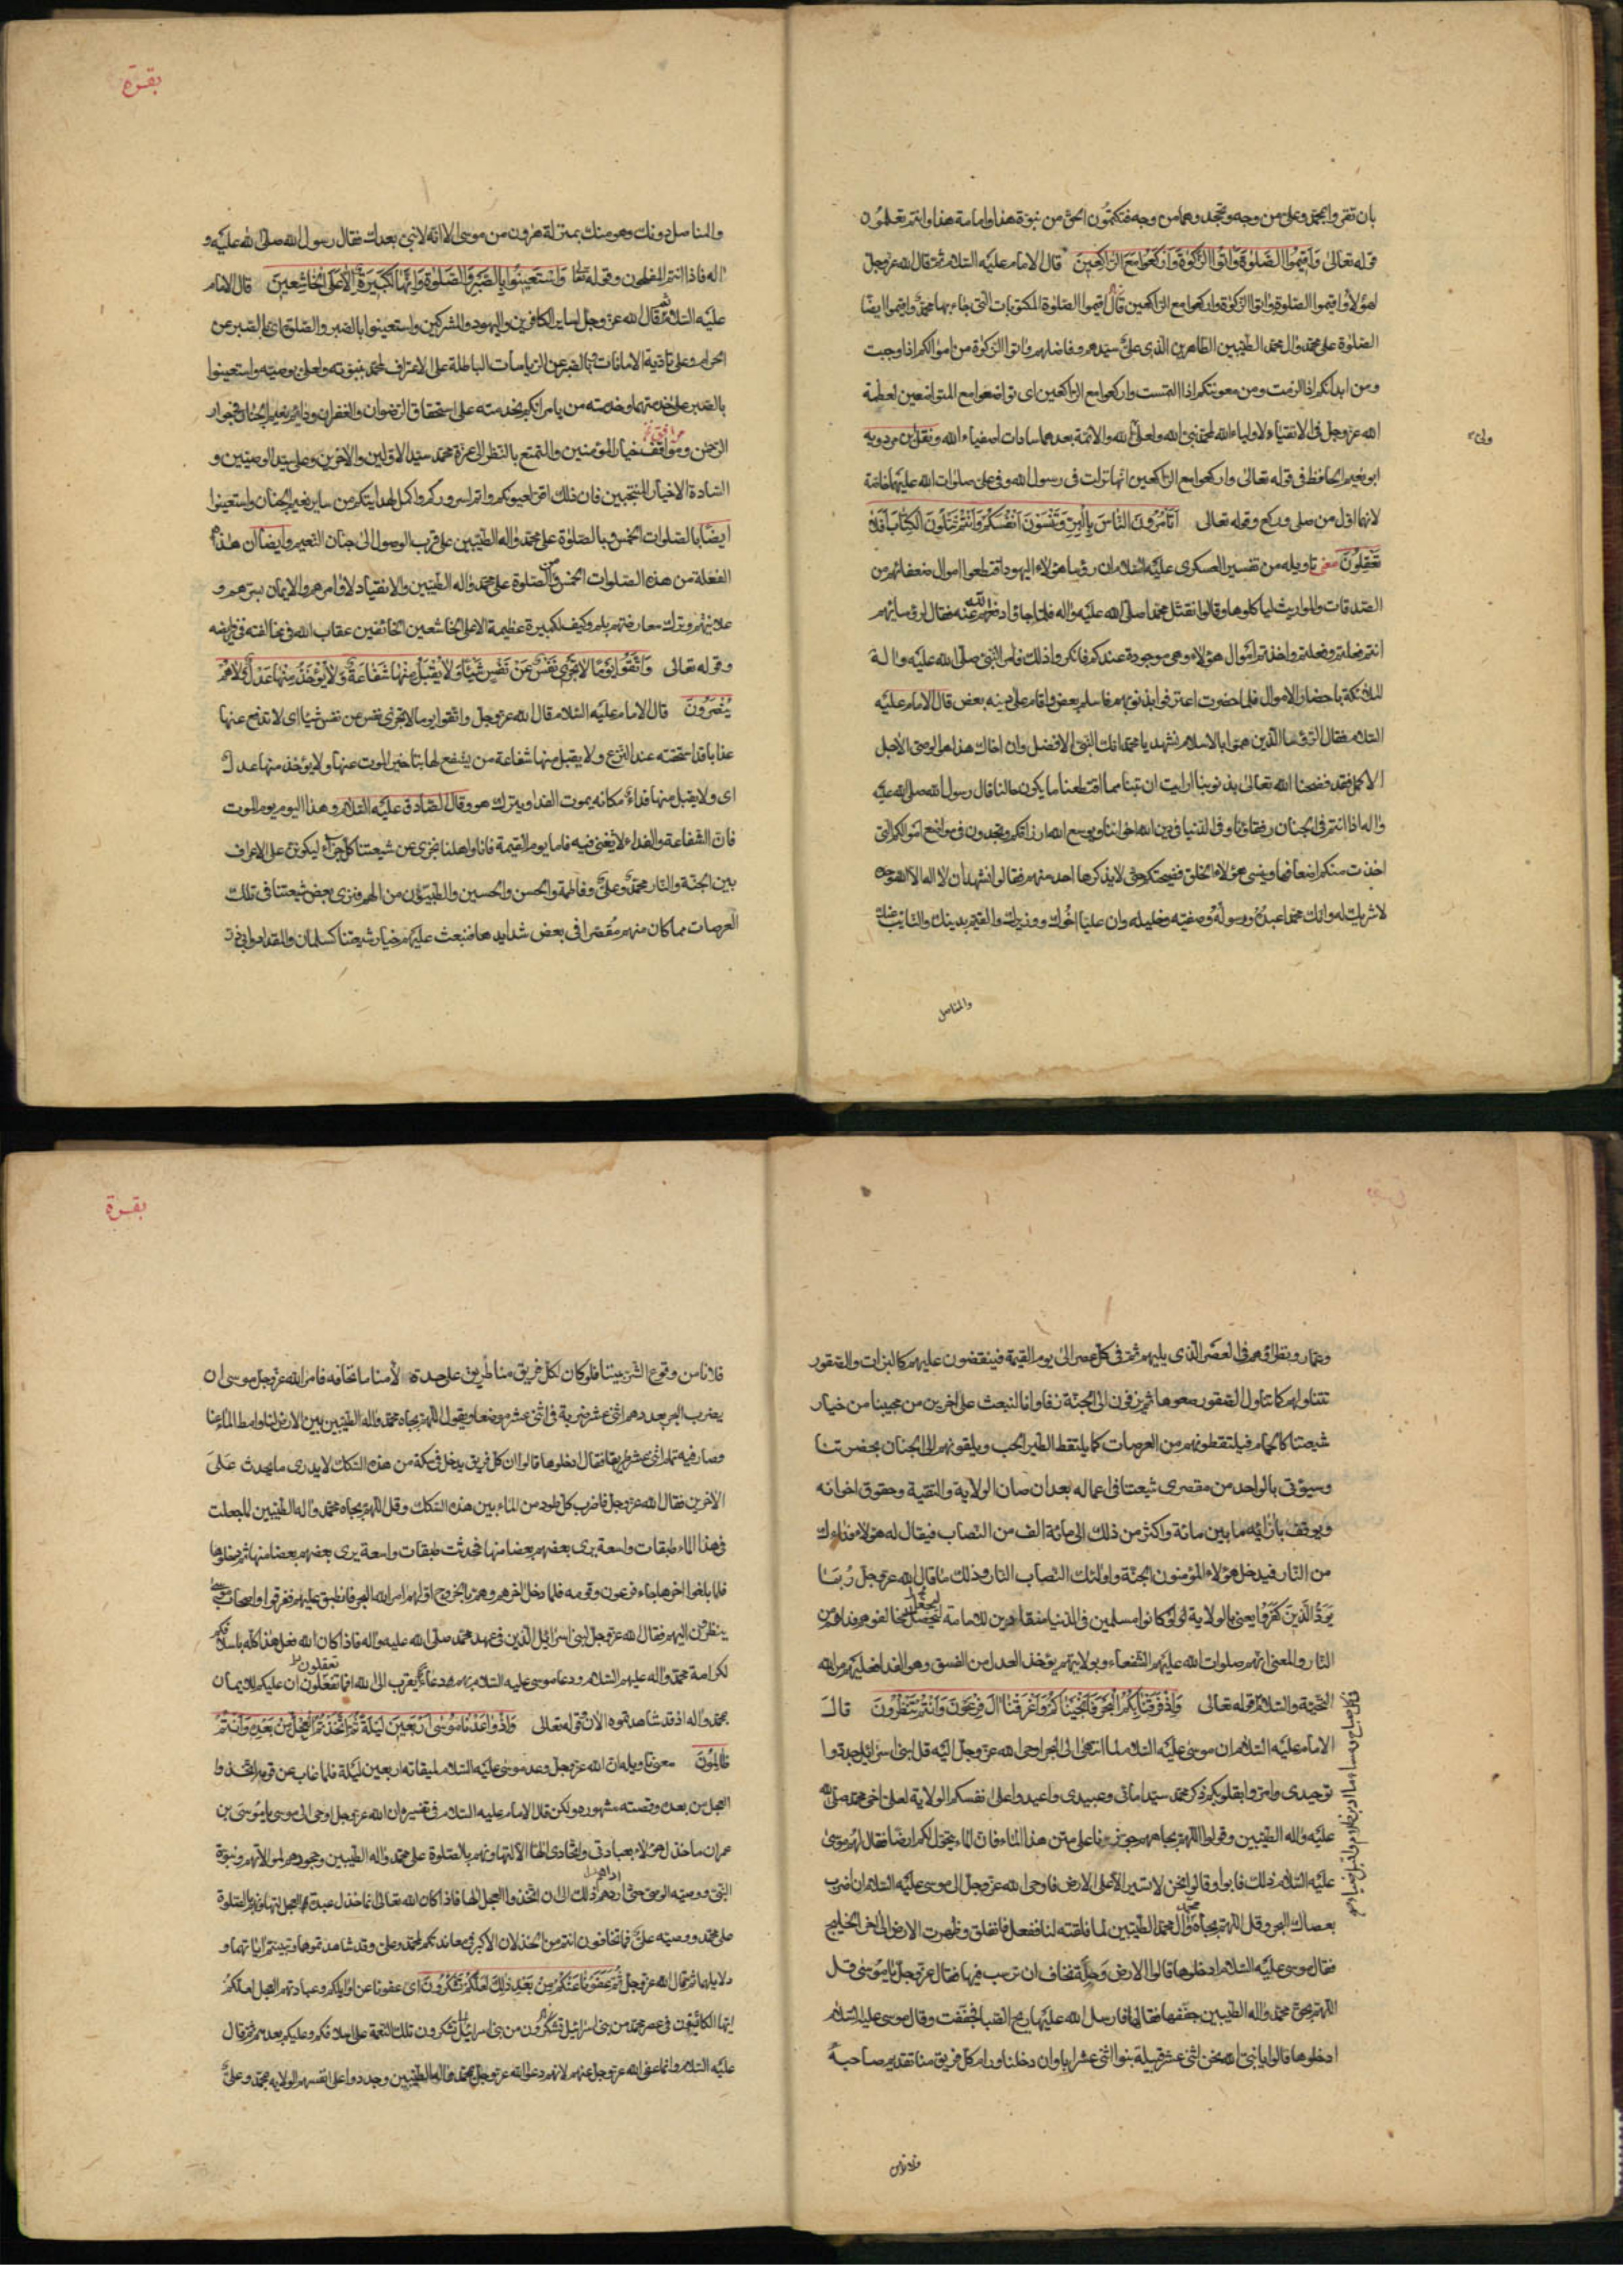 بان تقروا بمحمد وعلى من وجه وتجحدوهما من وجه فتكتمون الحق من نبوة هذا وامامة هذا وانتم تعلمون
قوله تعالى وَاَقِيمُوا الصَّلٰوةَ وَاٰتُوا الزَّكٰوةَ وَارْكَعُوا مَعَ الرَّاكِعِينَ قال الامام عليه السلام ثم قال الله عز وجل
لهؤلاء واقيموا الصلوة واتوا الزكوة واركعوا مع الراكعين قال اقيموا الصلوة المكتوبات التى جاء بها محمد واقيموا ايضا
الصلوة على محمد وال محمد الطيبين الطاهرين الذى على سيدهم وفاضلهم واتوا الزكوة من اموالكم اذا وجبت
ومن ابدانكم اذا لزمت ومن معونتكم اذا التمست واركعوا مع الراكعين اى تواضعوا مع المتواضعين لعظمة
الله عز وجل فى الانقياد لاولياء الله لمحمد نبى الله ولعلى ولى الله والائمة بعدهما سادات اصفياء الله ونقل ابن مردويه
ابو نعيم الحافظ فى قوله تعالى واركعوا مع الراكعين انها نزلت فى رسول الله وفى على صلوات الله عليهما خاصة
لانهما اول من صلى وركع وقوله تعالى اَتَأْمُرُونَ النَّاسَ بِالْبِرِّ وَتَنْسَوْنَ اَنْفُسَكُمْ وَاَنْتُمْ تَتْلُونَ الْكِتَابَ اَفَلَا
تَعْقِلُونَ معنى تاويله من تفسير العسكرى عليه السلام ان رؤساء هؤلاء اليهود اقتطعوا اموال ضعفائهم من
الصدقات والمواريث لياكلوها وقالوا نقتل محمدا صلى الله عليه واله فلما جاؤا دفعهم الله عنه فقال لرؤسائهم
انتم فعلتم وفعلتم واخذتم اموال هؤلاء وهى موجودة عندكم فانكروا ذلك فامر النبى صلى الله عليه واله
الملائكة باحضار الاموال فلما حضرت اعترفوا بذنوبهم فاسلم بعض واقام على دينه بعض قال الامام عليه
السلام فقال الرؤساء الذين هموا بالاسلام نشهد يا محمد انك النبى الافضل وان اخاك هذا هو الوصى الاجل
الاكمل فقد فضحنا الله تعالى بذنوبنا ارايت ان تبنا مما اقتطعنا ما يكون حالنا قال رسول الله صلى الله عليه
واله اذا انتم فى الجنان رفقاؤنا وفى الدنيا فى دين الله اخواننا ويوسع الله ارزاقكم وتجدون فى مواضع اموالكم التى
اخذت منكم اضعافها وينسى هؤلاء الخلق فضيحتكم حتى لا يذكرها احد منهم فقالوا نشهد ان لا اله الا الله وحده
لا شريك له وانك محمدا عبده ورسوله وصفيه وخليله وان عليا اخوك ووزيرك والقيم بدينك والنائب عنك
والمناضل
والمناضل دونك وهو منك بمنزلة هرون من موسى الا انه لا نبى بعدك فقال رسول الله صلى الله عليه و
اله فاذا انتم المفلحون وقوله تعالى وَاسْتَعِينُوا بِالصَّبْرِ وَالصَّلٰوةِ وَاِنَّهَا لَكَبِيرَةٌ اِلَّا عَلَى الْخَاشِعِينَ قال الامام
عليه السلام ثم قال الله عز وجل لساير الكافرين واليهود والمشركين واستعينوا بالصبر والصلوة اى بالصبر عن
الحرام وعلى تادية الامانات وبالصبر عن الرياسات الباطلة على الاعتراف لمحمد بنبوته ولعلى بوصيته واستعينوا
بالصبر على خدمتهما وخدمة من يامرانكم بخدمته على استحقاق الرضوان والغفران ودائم نعيم الجنان فى جوار
الرحمن ومرافقة خيار المؤمنين والتمتع بالنظر الى عزة محمد سيد الاولين والاخرين وعلى سيد الوصيين و
السادة الاخيار المنتجبين فان ذلك اقر لعيونكم واتم لسروركم واكمل لهدايتكم من ساير نعيم الجنان واستعينوا
ايضا بالصلوات الخمس وبالصلوة على محمد واله الطيبين على قرب الوصول الى جنان النعيم وايضا ان هذه
الفعلة من هذه الصلوات الخمس ومن الصلوة على محمد واله الطيبين والانقياد لاوامرهم والايمان بسرهم و
علانيتهم وترك معارضتهم بلم وكيف لكبيرة عظيمة الا على الخاشعين الخائفين عقاب الله فى مخالفته فى فرايضه
وقوله تعالى وَاتَّقُوا يَوْمًا لَا تَجْزِى نَفْسٌ عَنْ نَفْسٍ شَيْئًا وَلَا يُقْبَلُ مِنْهَا شَفَاعَةٌ وَلَا يُؤْخَذُ مِنْهَا عَدْلٌ وَلَا هُمْ
يُنْصَرُونَ قال الامام عليه السلام قال الله عز وجل واتقوا يوما لا تجزى نفس عن نفس شيئا اى لا تدفع عنها
عذابا قد استحقته عند النزع ولا يقبل منها شفاعة من يشفع لها بتاخير الموت عنها ولا يؤخذ منها عدل
اى ولا يقبل منها فداء مكانه يموت الفدا ويترك هو وقال الصادق عليه السلام وهذا اليوم يوم الموت
فان الشفاعة والفداء لا يغنى فيه فاما يوم القيمة فانا واهلنا نجزى عن شيعتنا كل جزاء ليكونن على الاعراف
بين الجنة والنار محمد وعلى وفاطمة والحسن والحسين والطيبون من الهم فنرى بعض شيعتنا فى تلك
العرصات مما كان منهم مقصرا فى بعض شدايدها فنبعث عليهم خيار شيعتنا كسلمان والمقداد وابى ذر
بقرة
وعمار ونظرائهم فى العصر الذى يليهم ثم فى كل عصر الى يوم القيمة فينقضون عليهم كالبزات والصقور
تتناولهم كما تتناول الصقور صعوها ثم يزفون الى الجنة زفا وانا لنبعث على اخرين من محبينا من خيار
شيعتنا كالحمام فيلتقطونهم من العرصات كما يلتقط الطير الحب ويلقونهم الى الجنان بحضرتنا
وسيؤتى بالواحد من مقصرى شيعتنا فى اعماله بعد ان صان الولاية والتقية وحقوق اخوانه
ويوقف بازائه ما بين مائة واكثر من ذلك الى مائة الف من النصاب فيقال له هؤلاء فداءك
من النار فيدخل هؤلاء المؤمنون الجنة واولئك النصاب النار وذلك ما قال الله عز وجل رُبَمَا
يَوَدُّ الَّذِينَ كَفَرُوا يعنى بالولاية لَوْ كَانُوا مسلمين فى الدنيا منقادين للامامة ليجعل مخالفوهم فداءهم من
النار والمعنى انهم صلوات الله عليهم الشفعاء وبولايتهم يؤخذ العدل من الفسق وهو الفدا فعليهم من الله
التحية والسلام قوله تعالى وَاِذْ فَرَقْنَا بِكُمُ الْبَحْرَ فَاَنْجَيْنَاكُمْ وَاَغْرَقْنَا اٰلَ فِرْعَوْنَ وَاَنْتُمْ تَنْظُرُونَ قال
الامام عليه السلام ان موسى عليه السلام لما انتهى الى البحر اوحى الله عز وجل اليه قل لبنى اسرائيل جددوا
توحيدى وامروا بقلوبكم ذكر محمد سيد امائى وعبيدى واعيدوا على انفسكم الولاية لعلى اخى محمد صلى الله
عليه واله الطيبين وقولوا اللهم بجاههم جوزنا على متن هذا الماء فان الماء يتحول لكم ارضا فقال لهم موسى
عليه السلام ذلك فابوا وقالوا نحن لا نسير الا على الارض فاوحى الله عز وجل الى موسى عليه السلام ان اضرب
بعصاك البحر وقل اللهم بجاه محمد وال محمد الطيبين لما فلقته لنا ففعل فانفلق وظهرت الارض الى اخر الخليج
فقال موسى عليه السلام ادخلوها قالوا الارض وحلة نخاف ان نرسب فيها فقال عز وجل يا موسى قل
اللهم بحق محمد واله الطيبين جففها فقالها فارسل الله عليها ريح الصبا فجففت وقال موسى عليه السلام
ادخلوها قالوا يا نبى الله نحن اثنى عشر قبيلة بنو اثنى عشر ابا وان دخلنا رام كل فريق منا تقديم صاحبه
فلا نامن
فلا نامن وقوع الشر بيننا فلو كان لكل فريق منا طريق على حدة لأمنا ما نخافه فامر الله عز وجل موسى ان
يضرب البحر بعددهم اثنى عشر ضربة فى اثنى عشر موضعا ويقول اللهم بجاه محمد واله الطيبين بين الارض لنا وامط الماء عنا
وصار فيه تمام اثنى عشر طريقا فقال ادخلوها قالوا ان كل فريق يدخل فى سكة من هذه السكك لا يدرى ما يحدث على
الاخرين فقال الله عز وجل فاضرب كل طود من الماء بين هذه السكك وقل اللهم بجاه محمد واله الطيبين لما جعلت
فى هذا الماء طبقات واسعة يرى بعضهم بعضا منها فحدثت طبقات واسعة يرى بعضهم بعضا منها ثم دخلوها
فلما بلغوا اخرها جاء فرعون وقومه فلما دخل اخرهم وهم بالخروج اولهم امر الله البحر فانطبق عليهم فغرقوا واصحاب موسى
ينظرون اليهم فقال الله عز وجل لبنى اسرائيل الذين فى عهد محمد صلى الله عليه واله فاذا كان الله فعل هذا كله باسلافكم
لكرامة محمد واله عليهم السلام ودعا موسى عليه السلام بهم دعاء يقرب الى الله افما تعقلون ان عليكم الايمان
بمحمد واله اذ قد شاهدتموه الان قوله تعالى وَاِذْ وَاعَدْنَا مُوسٰى اَرْبَعِينَ لَيْلَةً ثُمَّ اتَّخَذْتُمُ الْعِجْلَ مِنْ بَعْدِهِ وَاَنْتُمْ
ظَالِمُونَ معنى تاويله ان الله عز وجل وعد موسى عليه السلام لميقاته اربعين ليلة فلما غاب عن قومه اتخذوا
العجل من بعده وقصته مشهورة ولكن قال الامام عليه السلام فى تفسيره ان الله عز وجل اوحى الى موسى يا موسى بن
عمران ما خذل هؤلاء بعبادتى واتخاذى الها الا لتهاونهم بالصلوة على محمد واله الطيبين وجحودهم لموالاتهم ونبوة
النبى ووصية الوصى حتى اداهم ذلك الى ان اتخذوا العجل الها فاذا كان الله تعالى انما خذل عبدة العجل لتهاونهم بالصلوة
على محمد ووصيه على فما تخافون انتم من الخذلان الاكبر فى معاندتكم لمحمد وعلى وقد شاهدتموها وتبينتم اياتهما و
دلايلهما ثم قال الله عز وجل ثُمَّ عَفَوْنَا عَنْكُمْ مِنْ بَعْدِ ذٰلِكَ لَعَلَّكُمْ تَشْكُرُونَ اى عفونا عن اوايلكم وعبادتهم العجل لعلكم
ايها الكائنون فى عصر محمد من بنى اسرائيل تشكرون تلك النعمة على اسلافكم وعليكم بعدهم ثم قال
عليه السلام وانما عفى الله عز وجل عنهم لانهم دعوا الله عز وجل بمحمد واله الطيبين وجددوا على انفسهم الولاية بمحمد وعلى
بقرة